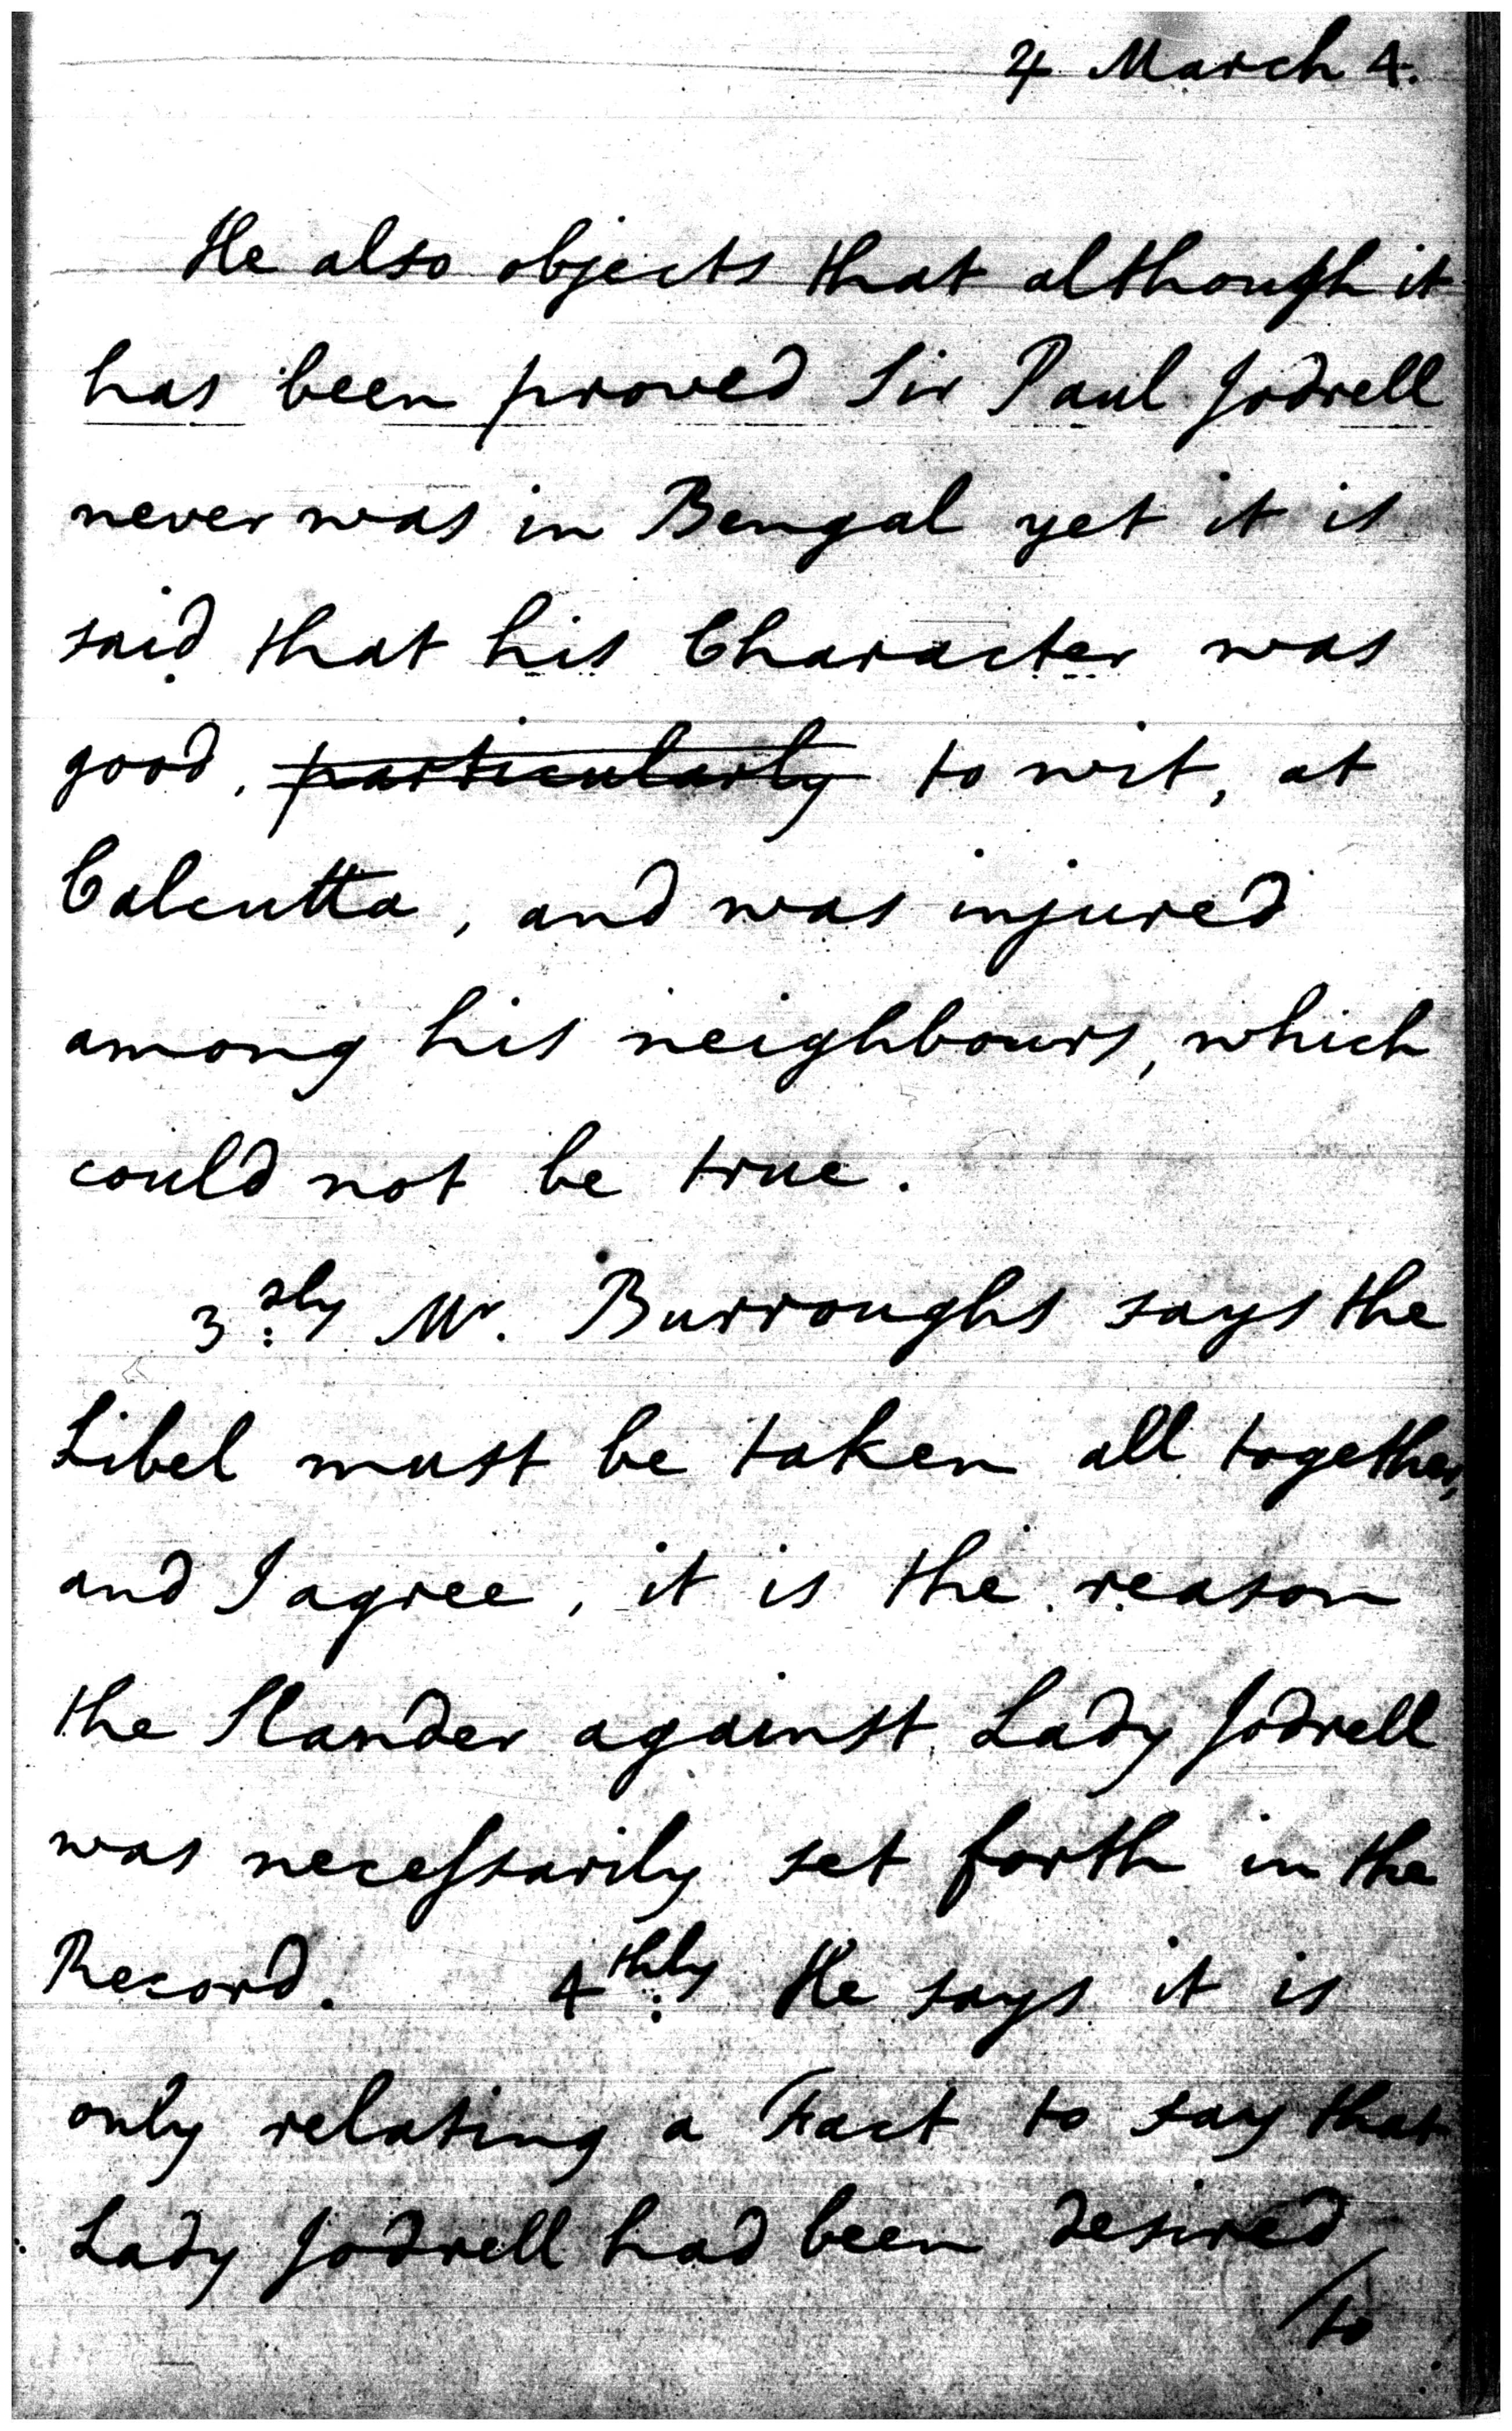 4 March 4.
He also objects that although it
has been proved Sir Paul Jodrell
never was in Bengal yet it is
said that his Character was
good, particularly to wit, at
Calcutta, and was injured
among his neighbours, which
could not be true.
3dly Mr. Burroughs says the
Libel must be taken all together,
and I agree, it is the reason
the Slander against Lady Jodrell
was necessarily set forth in the
Record. 4thly He says it is
only relating a Fact to say that
Lady Jodrell had been desired
/to